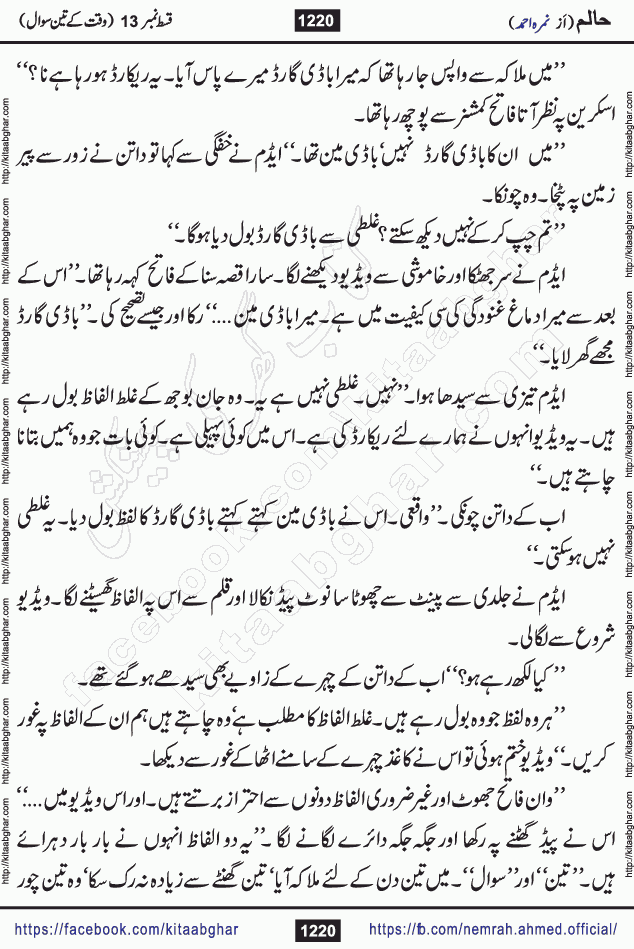 حالم (از نمرہ احمد) 1220 قسط نمبر 13 (وقت کے تین سوال)
’’میں ملاکہ سے واپس جا رہا تھا کہ میرا باڈی گارڈ میرے پاس آیا۔ یہ ریکارڈ ہو رہا ہے نا؟‘‘
اسکرین پہ نظر آتا فاتح کمشنر سے پوچھ رہا تھا۔
’’میں ان کا باڈی گارڈ نہیں‘ باڈی مین تھا۔‘‘ ایڈم نے خفگی سے کہا تو داتن نے زور سے پیر
زمین پہ پٹخا۔ وہ چونکا۔
’’تم چپ کر کے نہیں دیکھ سکتے؟ غلطی سے باڈی گارڈ بول دیا ہوگا۔‘‘
ایڈم نے سر جھٹکا اور خاموشی سے ویڈیو دیکھنے لگا۔ سارا قصہ سنا کے فاتح کہہ رہا تھا۔ ’’اس کے
بعد سے میرا دماغ غنودگی کی سی کیفیت میں ہے۔ میرا باڈی مین ....‘‘ رکا اور جیسے تصحیح کی۔ ’’باڈی گارڈ
مجھے گھر لایا۔‘‘
ایڈم تیزی سے سیدھا ہوا۔ ’’نہیں۔ غلطی نہیں ہے یہ۔ وہ جان بوجھ کے غلط الفاظ بول رہے
ہیں۔ یہ ویڈیو انہوں نے ہمارے لئے ریکارڈ کی ہے۔ اس میں کوئی پہیلی ہے۔ کوئی بات جو وہ ہمیں بتانا
چاہتے ہیں۔‘‘
اب کے داتن چونکی۔ ’’واقعی۔ اس نے باڈی مین کہتے کہتے باڈی گارڈ کا لفظ بول دیا۔ یہ غلطی
نہیں ہو سکتی۔‘‘
ایڈم نے جلدی سے پینٹ سے چھوٹا سا نوٹ پیڈ نکالا اور قلم سے اس پہ الفاظ گھسیٹنے لگا۔ ویڈیو
شروع سے لگا لی۔
’’کیا لکھ رہے ہو؟‘‘ اب کے داتن کے چہرے کے زاویے بھی سیدھے ہو گئے تھے۔
’’ہر وہ لفظ جو وہ بول رہے ہیں۔ غلط الفاظ کا مطلب ہے‘ وہ چاہتے ہیں ہم ان کے الفاظ پہ غور
کریں۔‘‘ ویڈیو ختم ہوئی تو اس نے کاغذ چہرے کے سامنے اٹھا کے غور سے دیکھا۔
’’وان فاتح جھوٹ اور غیر ضروری الفاظ دونوں سے احتراز برتتے ہیں۔ اور اس ویڈیو میں ....‘‘
اس نے پیڈ گھٹنے پہ رکھا اور جگہ جگہ دائرے لگانے لگا۔ ’’یہ دو الفاظ انہوں نے بار بار دہرائے
ہیں۔ ’’تین‘‘ اور ’’سوال‘‘۔ میں تین دن کے لئے ملاکہ آیا‘ تین گھنٹے سے زیادہ نہ رک سکا‘ وہ تین چور
https://facebook.com/kitaabghar 1220 https://fb.com/nemrah.ahmed.official/
http://kitaabghar.com http://kitaabghar.com http://kitaabghar.com http://kitaabghar.com http://kitaabghar.com http://kitaabghar.com http://kitaabghar.com http://kitaabghar.com
http://kitaabghar.com http://kitaabghar.com http://kitaabghar.com http://kitaabghar.com http://kitaabghar.com http://kitaabghar.com http://kitaabghar.com http://kitaabghar.com
کتاب گھر کی پیشکش
facebook.com/kitaabghar
kitaabghar.com